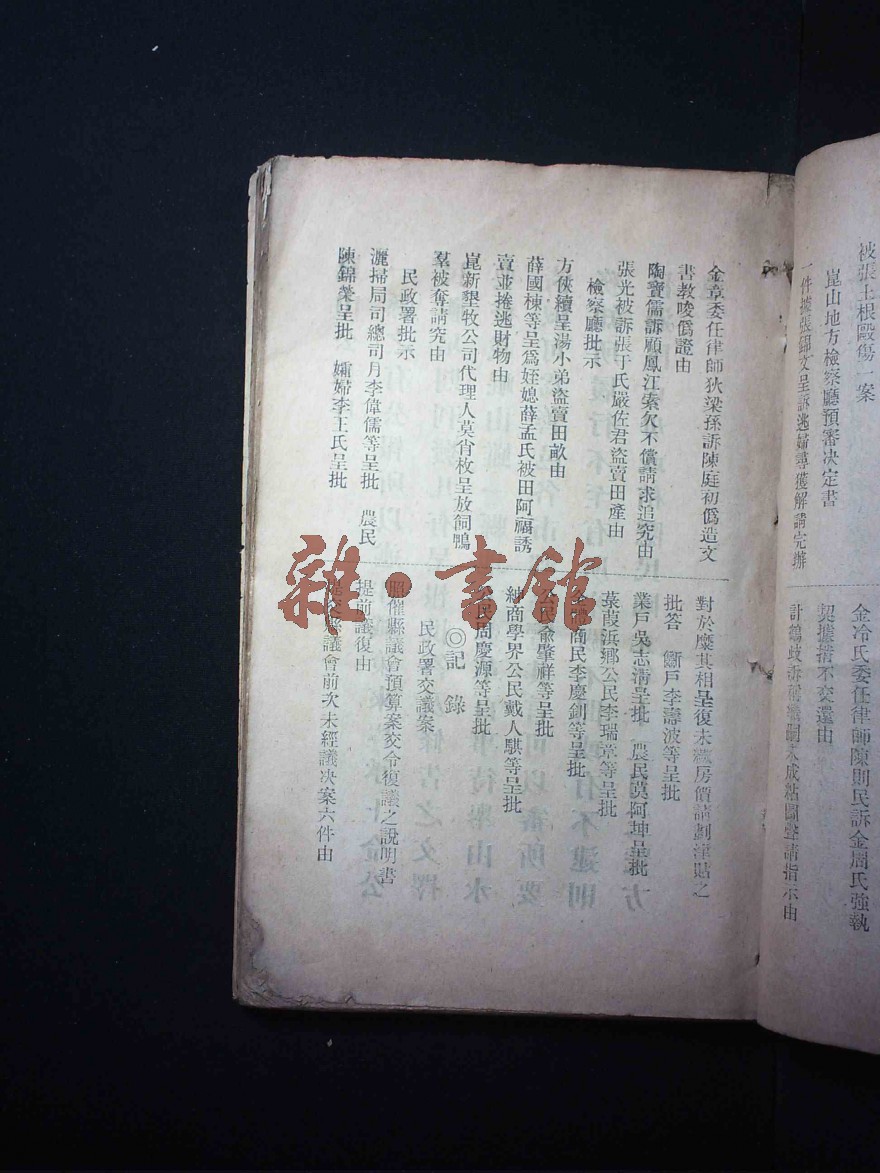 被張土根毆傷一案
崑山地方檢察廳預審決定書
一件據張錦文呈訴逃婦尋獲解請究辦
金冷氏委任律師陳則民訴金周氏強執
契據揹不交還由
計鶴歧訴
請指示由
金章委任律師狄梁孫訴陳庭初僞造文
書教唆僞證由
陶寶儒訴顧鳳江索欠不償請求追究由
張光被訴張于氏嚴佐君盜賣田產由
檢察廳批示
方俠續呈湯小弟盜賣田畝由
薛國棟等呈爲姪媳薛孟氏被田阿福誘
賣並捲逃財物由
崑新墾牧公司代理人莫肖枚呈放飼鴨
羣被奪請究由
民政署批示
灑掃局司總司月李偉儒等呈批 農民
陳錦榮呈批 孀婦李王氏呈批
對於糜其相呈復未繳房價請劃津貼之
批答 斷戶李濤波等呈批
業戶吳志淸呈批 農民莫阿坤呈批
菉葭浜鄉公民李瑞章等呈批
全體商民李慶釗等呈批
公民俞肇祥等呈批
紳商學界公民戴人騏等呈批
公民周慶源等呈批
◎記錄
民政署交議案
照催縣議會預算案交令復議之說明書
提前議復由
提交縣議會前次未經議決案六件由
雜·書館